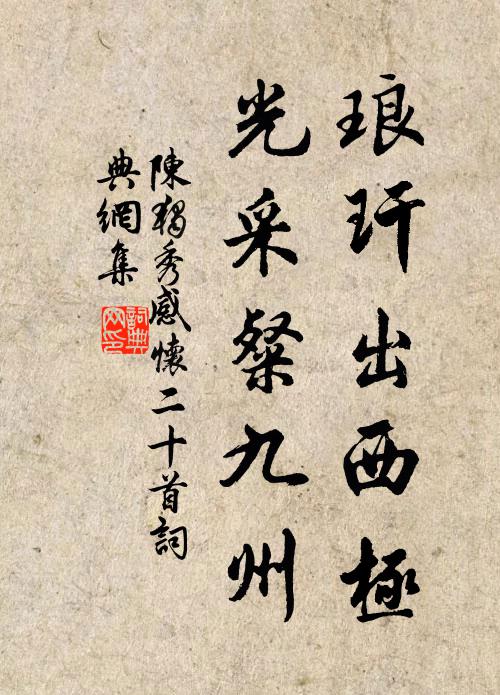 琅玕出西極
光采粲九州
陳獨秀感懷二十首詞
典網集
詞典
网印